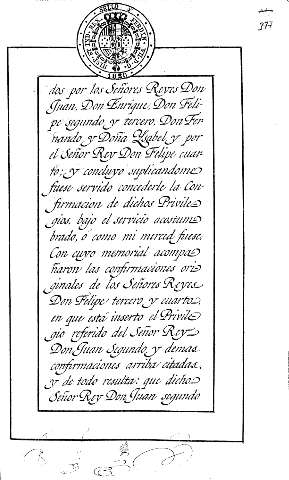 177
dos por los Señores Reyes Don
Juan, Don Enrique, Don Feli-
pe segundo y tercero, Don Fer-
nando, y Doña Ysabel, y por
el Señor Rey Don Felipe cuar-
to; y concluyo suplicandome
fuese servido concederle la Con-
firmacion de dichos Privile-
gios, bajo el servicio acostum-
brado, ó como mi merced fuese.
Con cuyo memorial acompa-
ñaron las confirmaciones ori-
ginales de los Señores Reyes
Don Felipe tercero y cuarto,
en que está inserto el Privile-
gio referido del Señor Rey
Don Juan Segundo, y demas
confirmaciones arriba citadas,
y de todo resulta: que dicho
Señor Rey Don Juan segundo